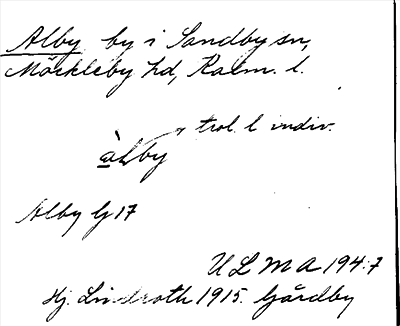 Alby by i Sandby sn,
Möckleby hd, Kalm. l.
trol. l indiv.
àlby
Alby Gj 17
ULMA 194:7
Hj. Lindroth 1915. Gårdby